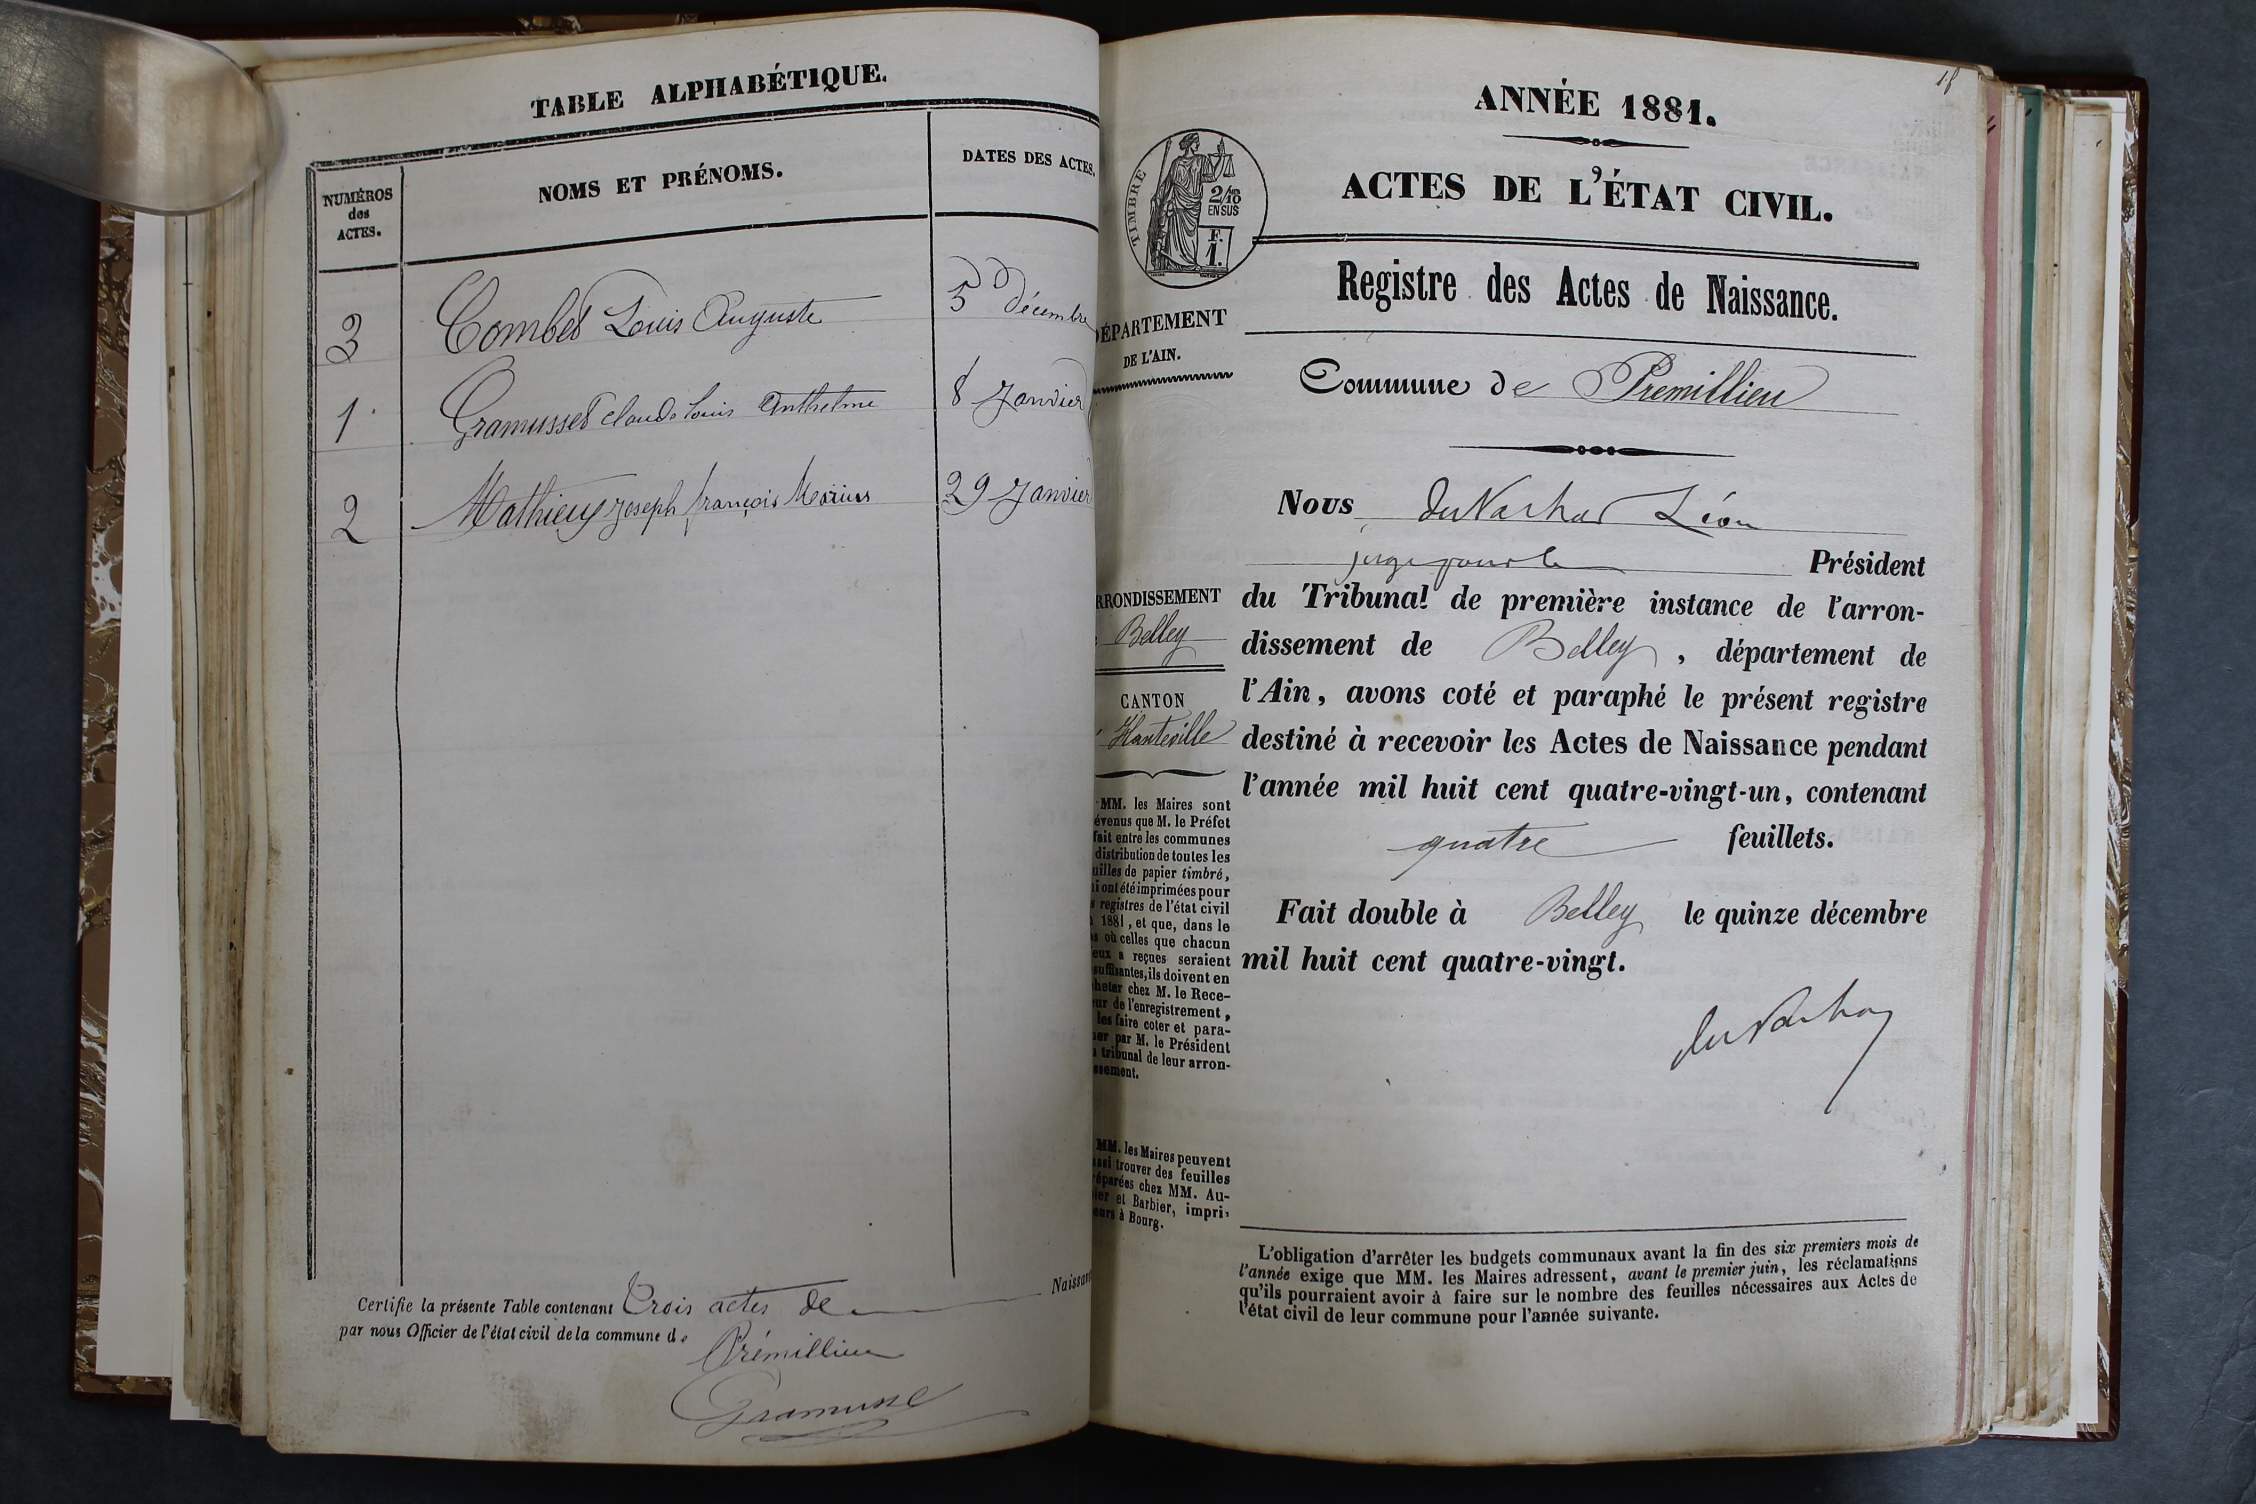 TABLE ALPHABÉTIQUE.
NUMÉROS
des
ACTES.
NOMS ET PRÉNOMS.
DATES DES ACTES.
3 Combet Louis Auguste 5 décembre
1 Gramusset Claude Louis Anthelme 8 Janvier
2 Mathieu Joseph françois Marius 29 Janvier
Certifie la présente Table contenant Trois actes de Naissan
par nous Officier de l'état civil de la commune de
Prémillieu
Gramusse
18
ANNÉE 1881.
ACTES DE L'ÉTAT CIVIL.
TIMBRE
2/10
EN SUS
F.
1.
Registre des Actes de Naissance.
DÉPARTEMENT
DE L'AIN.
Commune de Premillieu
Nous Léon
juge pour le Président
du Tribunal de première instance de l'arron-
dissement de Belley, département de
l'Ain, avons coté et paraphé le présent registre
destiné à recevoir les Actes de Naissance pendant
l'année mil huit cent quatre-vingt-un, contenant
quatre feuillets.
Fait double à Belley le quinze décembre
mil huit cent quatre-vingt.
RRONDISSEMENT
Belley
CANTON
Hauteville
MM. les Maires sont
évenus que M. le Préfet
fait entre les communes
distribution de toutes les
uilles de papier timbré,
i ont été imprimées pour
s registres de l'état civil
1881, et que, dans le
s où celles que chacun
eux a reçues seraient
suffisantes, ils doivent en
heter chez M. le Rece-
eur de l'enregistrement,
les faire coter et para-
er par M. le Président
u tribunal de leur arron-
ssement.
MM. les Maires peuvent
ussi trouver des feuilles
réparées chez MM. Au-
ier et Barbier, impri-
eurs à Bourg.
L'obligation d'arrêter les budgets communaux avant la fin des six premiers mois de
l'année exige que MM. les Maires adressent, avant le premier juin, les réclamations
qu'ils pourraient avoir à faire sur le nombre des feuilles nécessaires aux Actes de
l'état civil de leur commune pour l'année suivante.